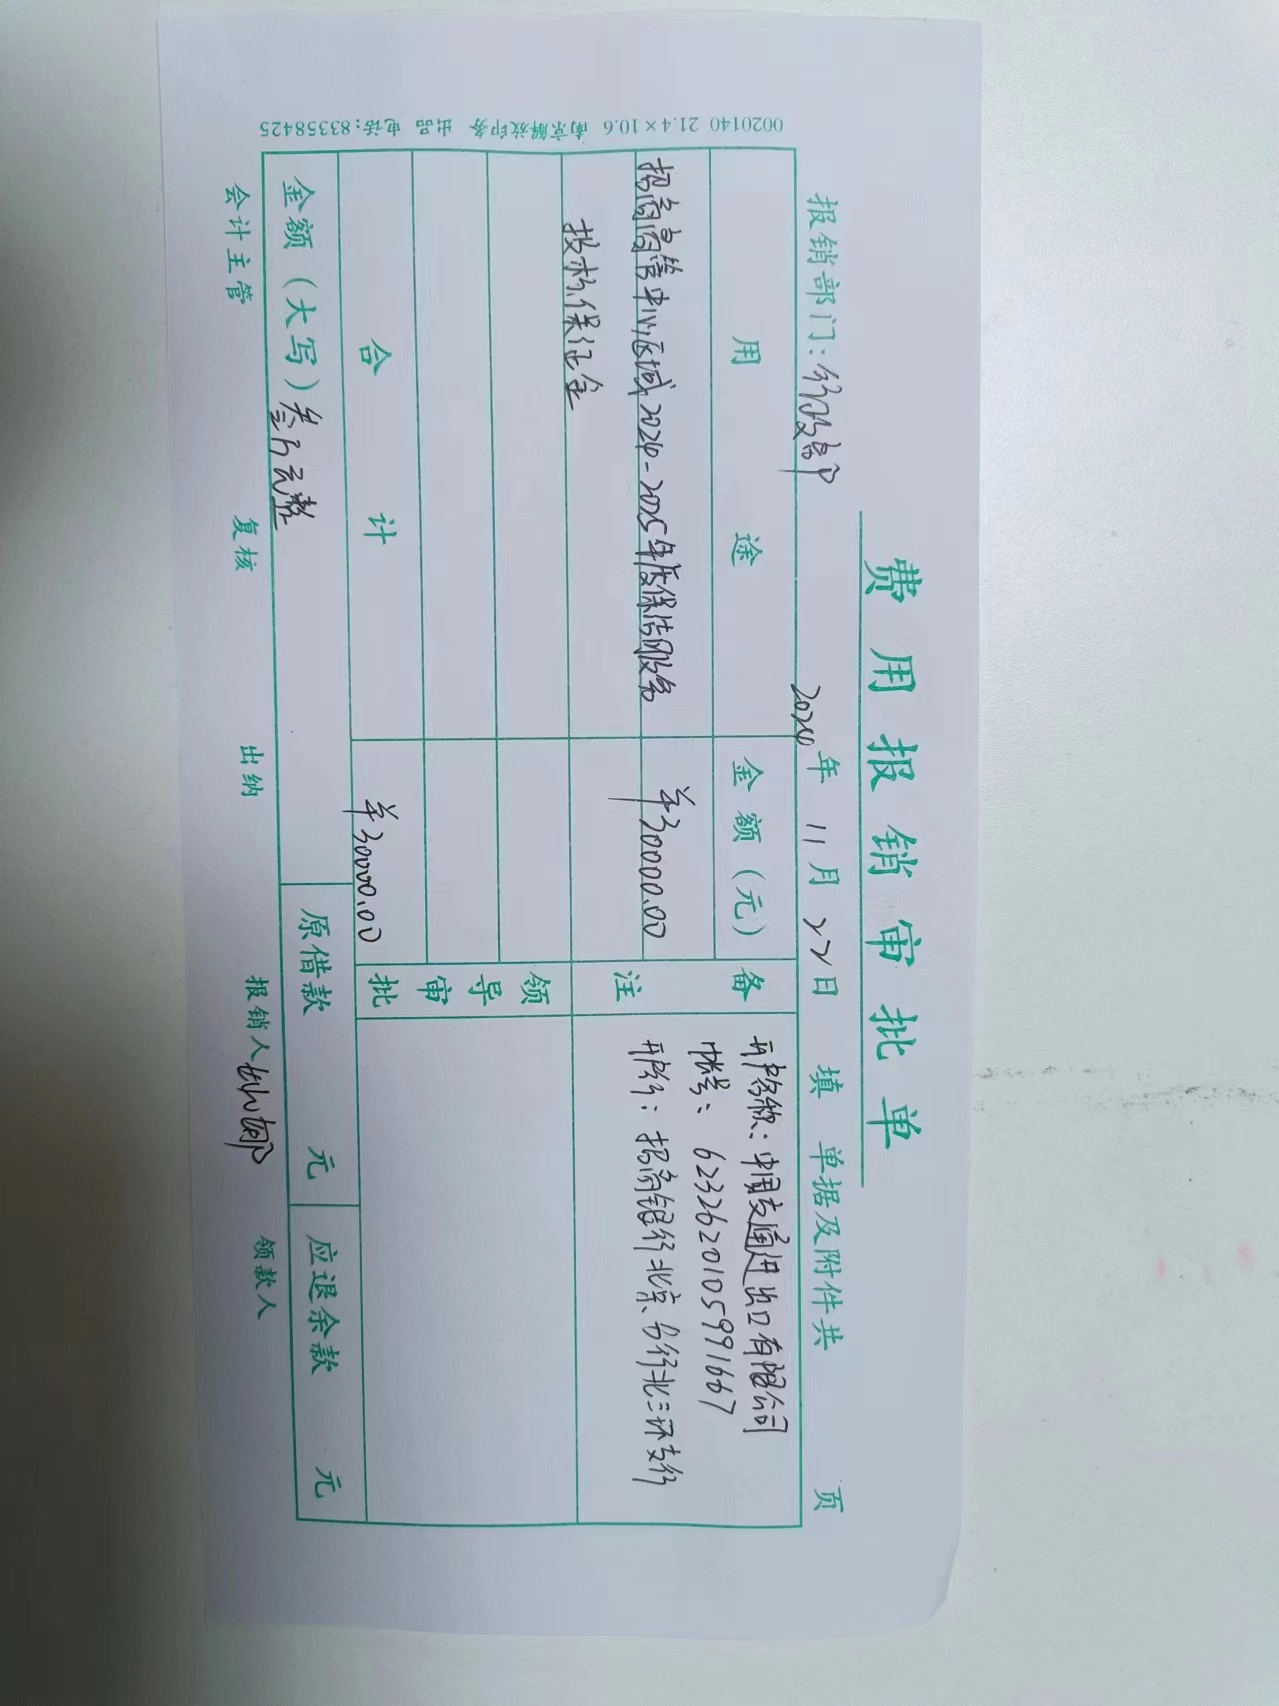 费用报销审批单
报销部门：行政部 2024年11月22日填 单据及附件共 页
用途 金额（元） 备注
招商高管中心区域2024-2025年度保洁服务 ￥30000.00
投标保证金
开户名称：中国交通进出口有限公司
帐号：6232620105991667
开户行：招商银行北京分行北三环支行
领导审批
合计 ￥30000.00
金额（大写）叁万元整 原借款 元 应退余款 元
会计主管 复核 出纳 报销人 领款人
0020140 21.4×10.6 南京解放印务 出品 电话：83358425